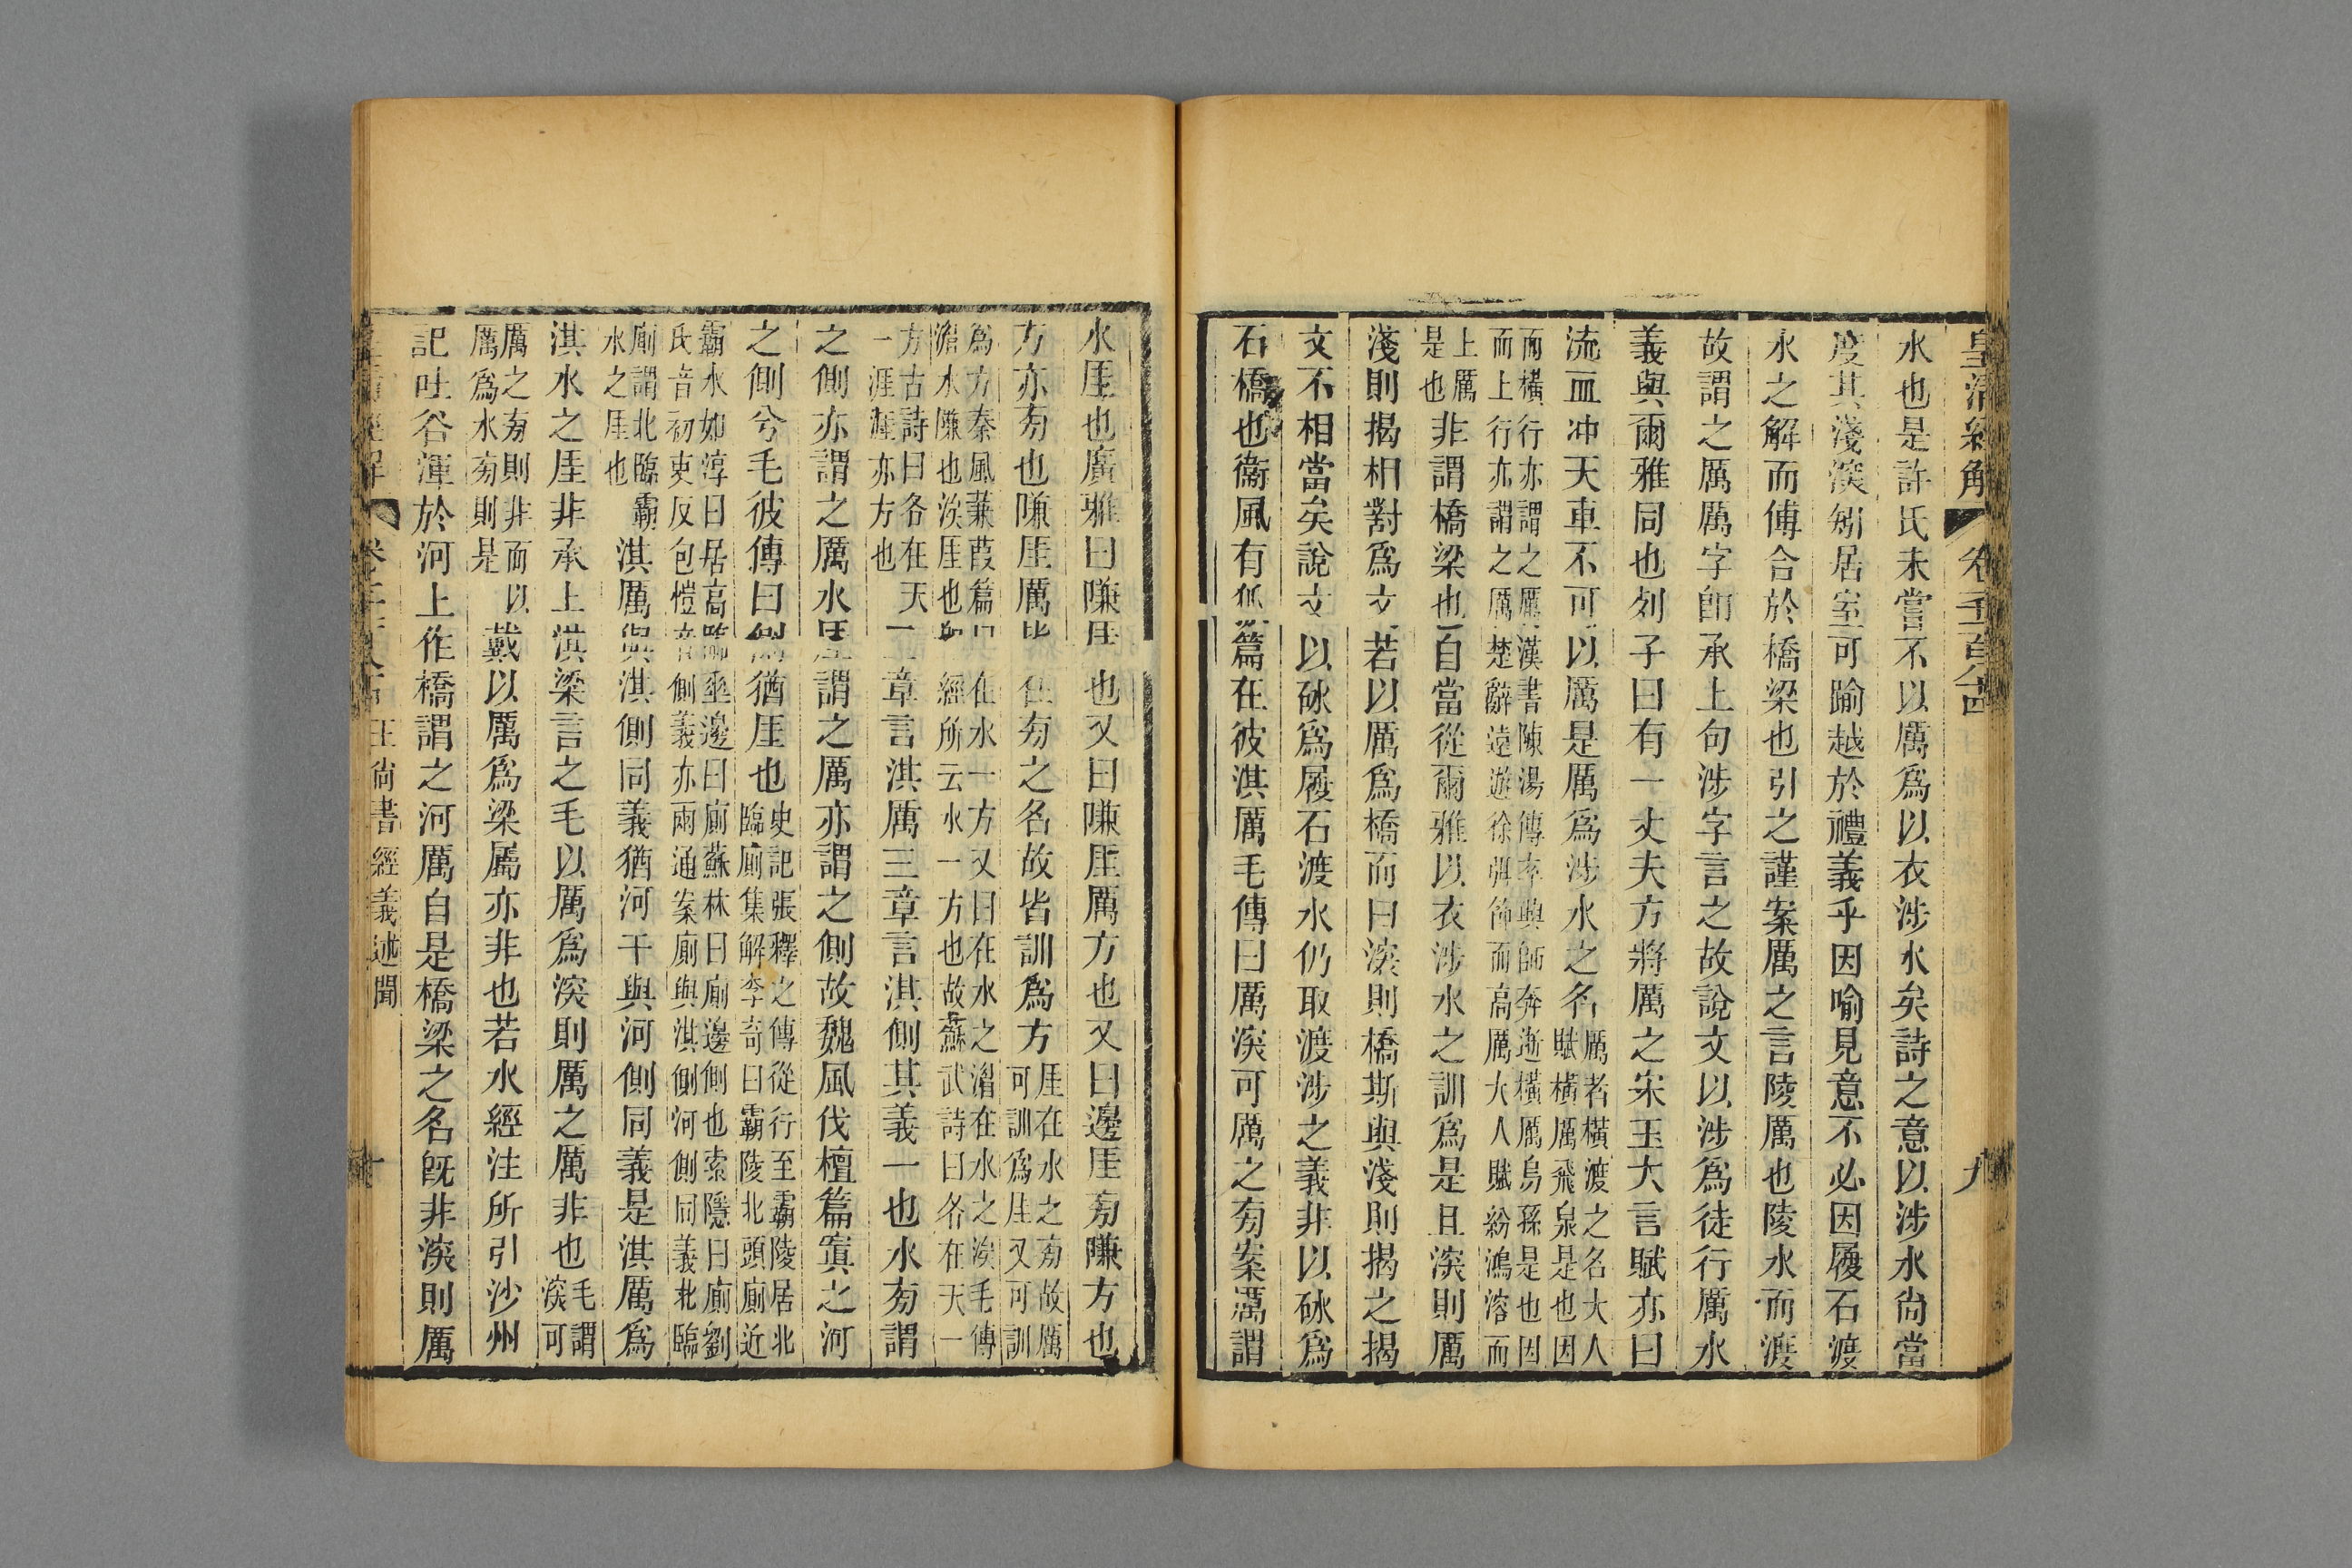 皇清經解 卷千百八十四 九
水也是許氏未嘗不以厲爲以衣涉水矣詩之意以涉水尙當
度其淺深矧居室可踰越於禮義乎因喻見意不必因履石渡
水之解而傅合於橋梁也引之謹案厲之言陵厲也陵水而渡
故謂之厲厲字卽承上句涉字言之故說文以涉爲徒行厲水
義與爾雅同也列子曰有一丈夫方將厲之宋玉大言賦亦曰
流血冲天車不可以厲是厲爲涉水之名厲者橫渡之名大人賦橫厲飛泉是也因
而橫行亦謂之厲漢書陳湯傳卒興師奔逝橫厲烏孫是也因而上行亦謂之厲楚辭遠遊徐弭節而高厲大人賦紛鴻溶而
上厲是也非謂橋梁也自當從爾雅以衣涉水之訓爲是且深則厲
淺則揭相對爲文若以厲爲橋而曰深則橋斯與淺則揭之揭
文不相當矣說文以砅爲履石渡水仍取渡涉之義非以砅爲
石橋也衞風有狐篇在彼淇厲毛傳曰厲深可厲之旁案厲謂
水厓也廣雅曰隒厓也又曰隒厓厲方也又曰邊厓旁隒方也
方亦旁也隒厓厲皆在旁之名故皆訓爲方厓在水之旁故厲可訓爲厓又可訓
爲方秦風蒹葭篇曰在水一方又曰在水之湄在水之涘毛傳湄水隒也涘厓也與經所云水一方也故蘇武詩曰各在天一
方古詩曰各在天一涯涯亦方也二章言淇厲三章言淇側其義一也水旁謂
之側亦謂之厲水厓謂之厲亦謂之側故魏風伐檀篇寘之河
之側兮毛彼傳曰側猶厓也史記張釋之傳從行至霸陵居北臨廁集解李奇曰霸陵北頭廁近
霸水如淳曰居高臨垂邊曰廁蘇林曰廁邊側也索隱曰廁劉氏音初吏反包愷音側義亦兩通案廁與淇側河側同義北臨
廁謂北臨霸水之厓也淇厲與淇側同義猶河干與河側同義是淇厲爲
淇水之厓非承上淇梁言之毛以厲爲深則厲之厲非也毛謂深可
厲之旁則非而以厲爲水旁則是戴以厲爲梁屬亦非也若水經注所引沙州
記吐谷渾於河上作橋謂之河厲自是橋梁之名旣非深則厲
王尙書經義述聞 十